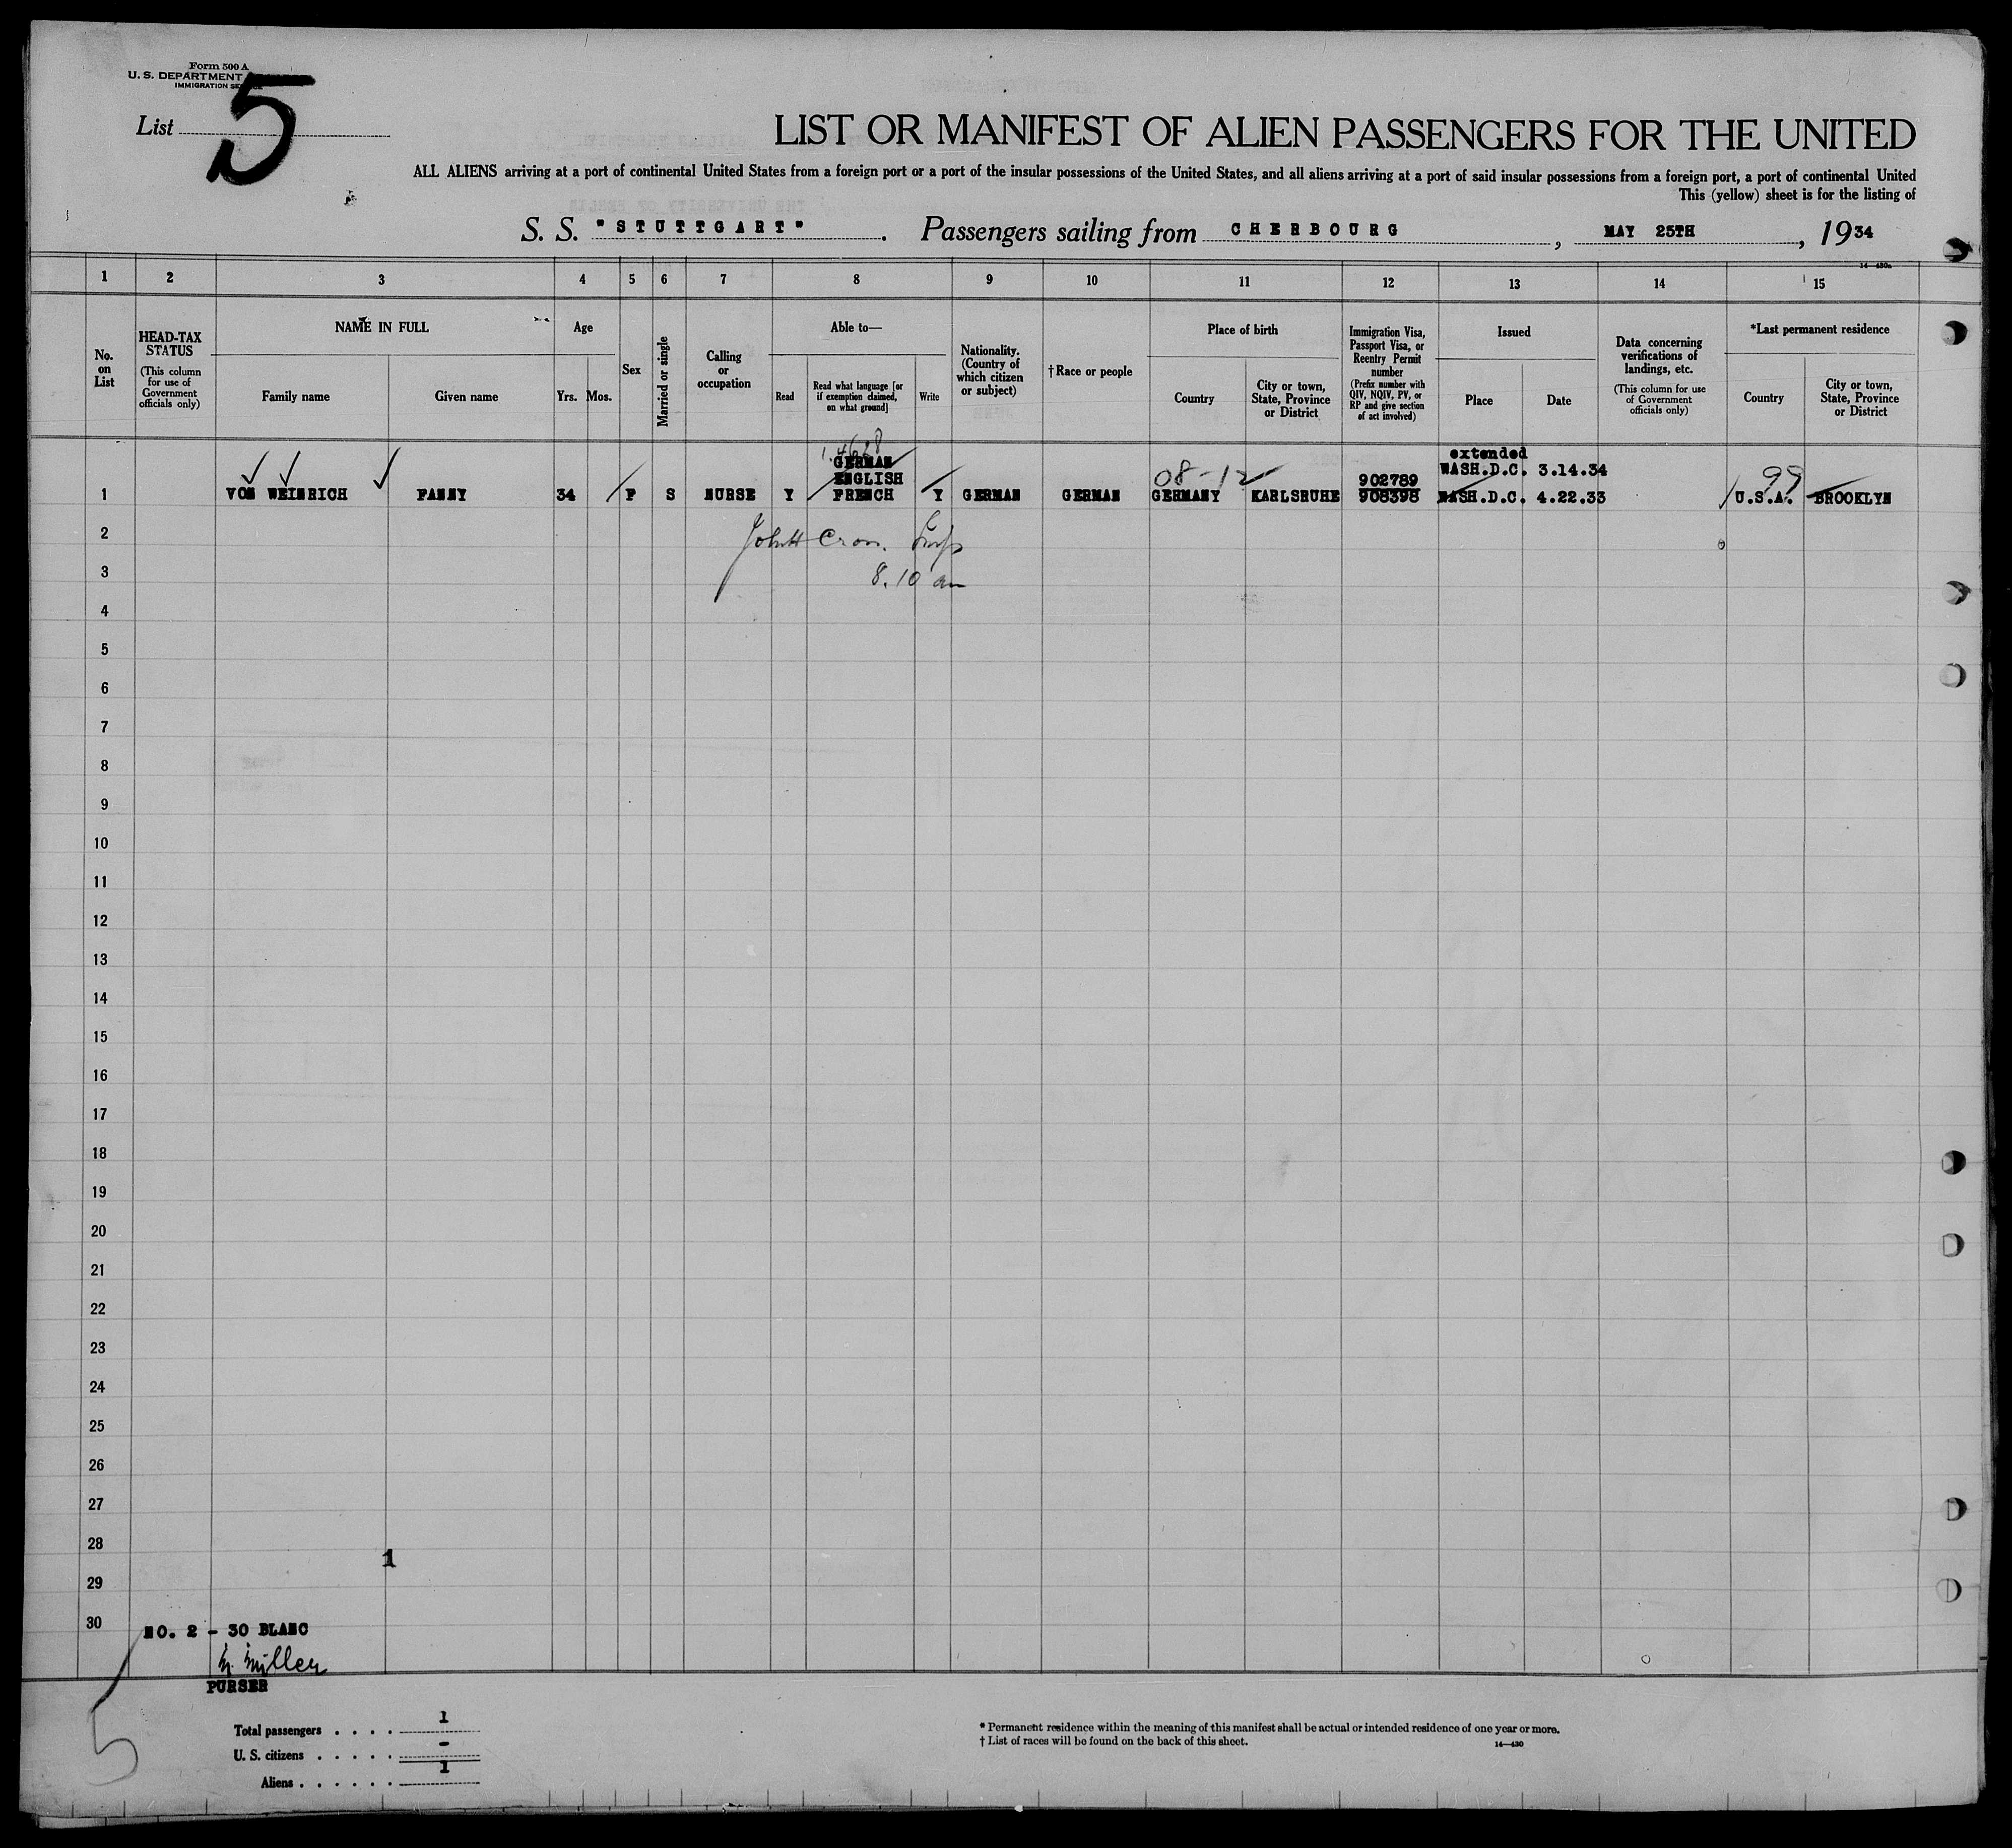 Form 500 A
U. S. DEPARTMENT
IMMIGRATION
List 5
LIST OR MANIFEST OF ALIEN PASSENGERS FOR THE UNITED
ALL ALIENS arriving at a port of continental United States from a foreign port or a port of the insular possessions of the United States, and all aliens arriving at a port of said insular possessions from a foreign port, a port of continental United
This (yellow) sheet is for the listing of
S. S. "STUTTGART". Passengers sailing from CHERBOURG, MAY 25TH, 1934
14—430a
1 2 3 4 5 6 7 8 9 10 11 12 13 14 15
No. on List
HEAD-TAX STATUS
(This column for use of Government officials only)
NAME IN FULL
Family name
Given name
Age
Yrs. Mos.
Sex
Married or single
Calling or occupation
Able to—
Read
Read what language [or if exemption claimed, on what ground]
Write
Nationality. (Country of which citizen or subject)
†Race or people
Place of birth
Country
City or town, State, Province or District
Immigration Visa, Passport Visa, or Reentry Permit number
(Prefix number with QIV, NQIV, PV, or RP and give section of act involved)
Issued
Place
Date
Data concerning verifications of landings, etc.
(This column for use of Government officials only)
*Last permanent residence
Country
City or town, State, Province or District
extended
GERMAN WASH.D.C. 3.14.34
ENGLISH 08-12 902789 99
1 VON WEINRICH FANNY 34 F S NURSE Y FRENCH Y GERMAN GERMAN GERMANY KARLSRUHE 908398 WASH.D.C. 4.22.33 U.S.A. BROOKLYN
2
3 8.10 am
4
5
6
7
8
9
10
11
12
13
14
15
16
17
18
19
20
21
22
23
24
25
26
27
28
1
29
30 NO. 2 - 30 BLANC
Müller
PURSER
5
Total passengers . . . . 1
U. S. citizens . . . . . -
Aliens . . . . . . 1
* Permanent residence within the meaning of this manifest shall be actual or intended residence of one year or more.
† List of races will be found on the back of this sheet.
14—430